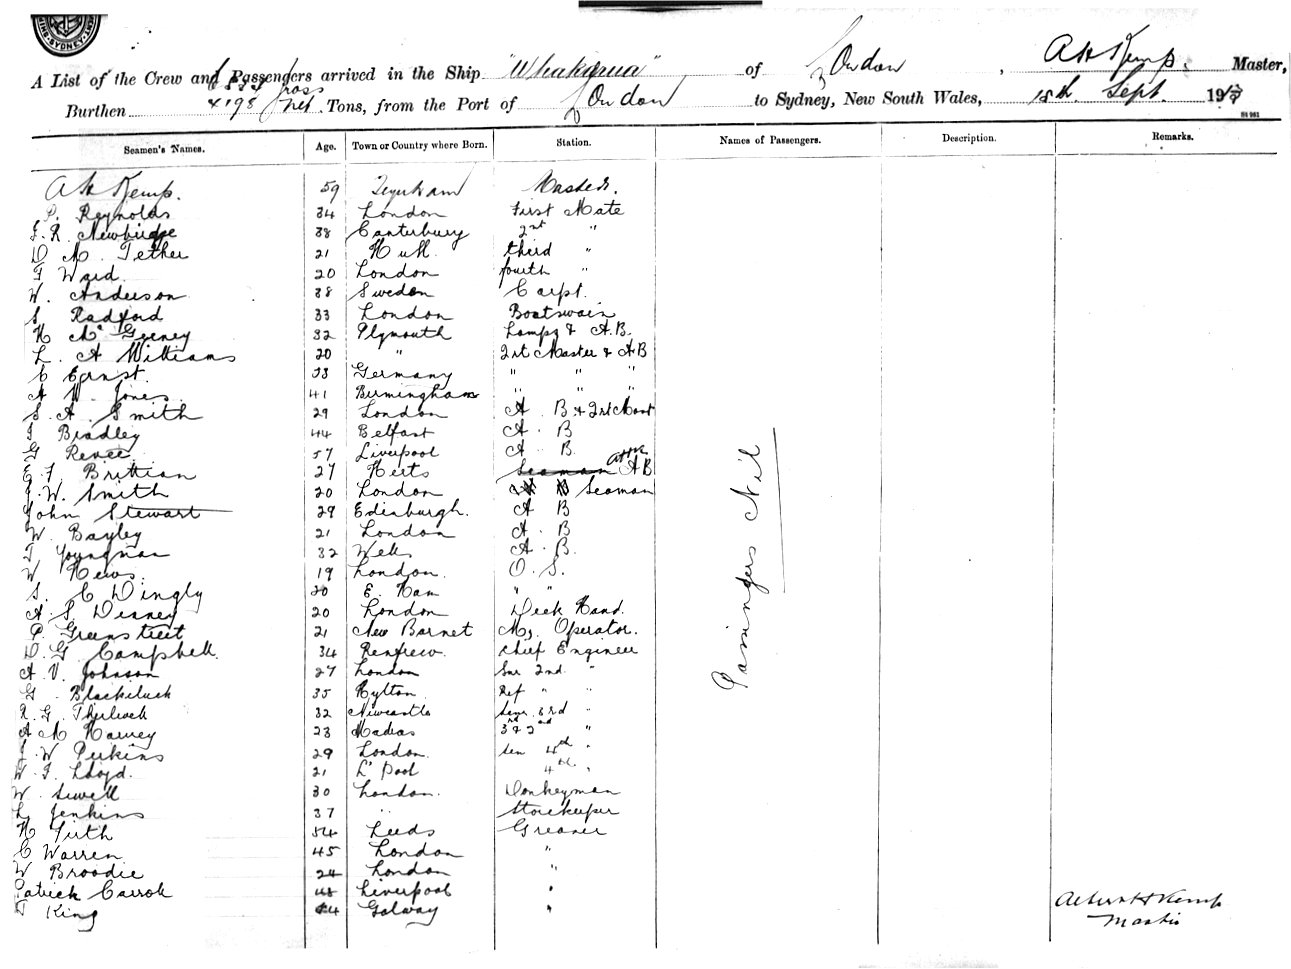 SYDNEY
A List of the Crew and Passengers arrived in the Ship "Whakarua" of London, A H Kemp, Master,
Burthen gross 4198 net Tons, from the Port of London to Sydney, New South Wales, 18th Sept. 191
St 981
Seamen's Names. Age. Town or Country where Born. Station. Names of Passengers. Description. Remarks.
A H Kemp. 59 Master.
P. Reynolds 34 London First Mate
F. R. Newbridge 38 Canterbury 2nd "
D M. Tether 21 Hull third "
F Ward 20 London fourth "
W. Anderson 38 Sweden Carpt.
S Radford 33 London Boatswain
H Mc Geeney 32 Plymouth Lamps & A.B.
L. A Williams 20 " Qrt Master & AB
C Ernst. 33 Germany " " "
A W. Jones 41 Birmingham " " "
S. A. Smith 29 London A B & Qrt Mast
J Bradley 44 Belfast A. B
G Renee 57 Liverpool A. B.
E F Brittian 27 Herts Seaman AB
J. W. Smith 20 London Seaman
John Stewart 29 Edinburgh. A B
W. Bayley 21 London A. B
T Youngman 32 Wells A. B.
W Hews. 19 London. O. S.
S. C Dingly 20 E. Ham " "
A. S. Disney 20 London Deck Hand.
P. Greenstreet 21 New Barnet M, Operator.
D. G Campbell 34 Renfrew. Chief Engineer
A. V. Johnson 27 London Snr 2nd. "
G. 35 Hylton Ref " "
R. G. 32 Newcastle Senr 3rd "
A M Harvey 23 Madras "
J. W Perkins 29 London. Sen 4th "
W. F. Lloyd. 21 L'Pool 4th. "
W. Sewell 30 London. Donkeyman
L Jenkins 37 " Storekeeper
H Firth 54 Leeds Greaser
C Warren 45 London "
W Broodie 24 London "
Patrick Carroll 48 Liverpool "
T King 44 Galway "
Passengers Nil
Albert H Kemp
Master